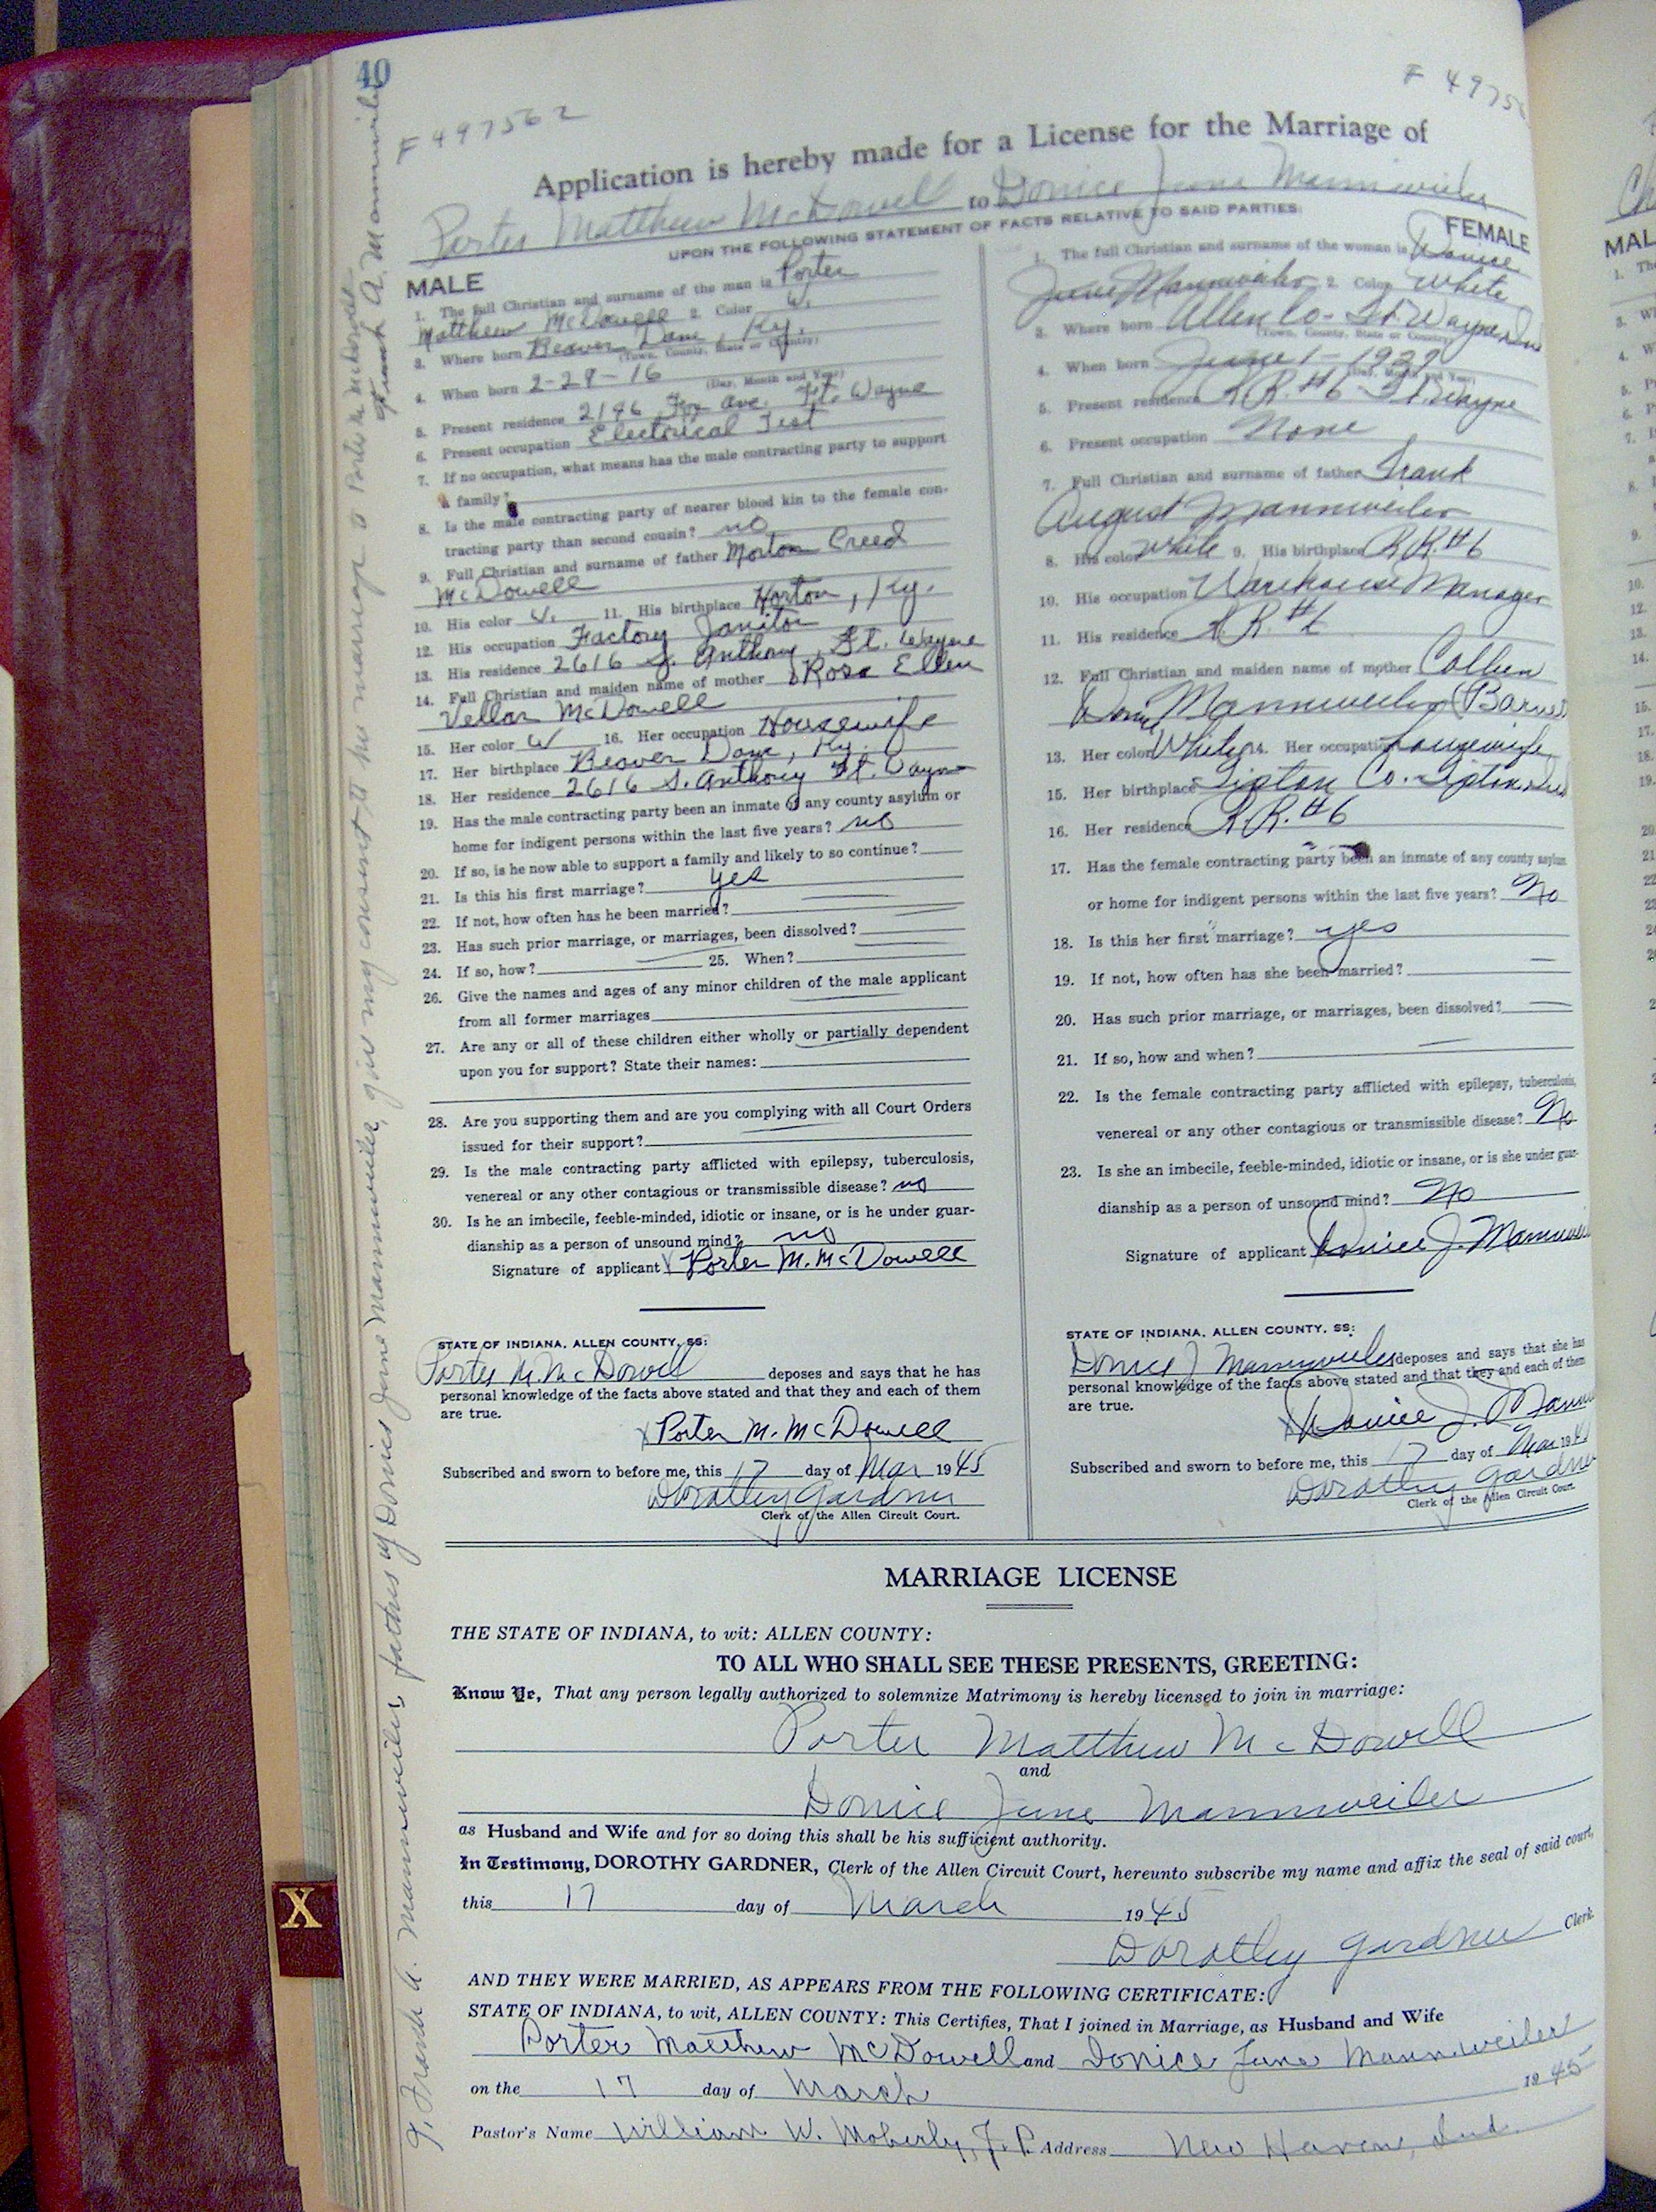 40
F 497562
F 4975
Application is hereby made for a License for the Marriage of
Porter Matthew McDowell to Donice June Mannweiler
UPON THE FOLLOWING STATEMENT OF FACTS RELATIVE TO SAID PARTIES:
MALE
1. The full Christian and surname of the man is Porter
Matthew McDowell 2. Color W.
3. Where born Beaver Dam, Ky.
(Town, County, State or Country)
4. When born 2-29-16
(Day, Month and Year)
5. Present residence 2146 Fox Ave. Ft. Wayne
6. Present occupation Electrical Test
7. If no occupation, what means has the male contracting party to support
a family?
8. Is the male contracting party of nearer blood kin to the female con-
tracting party than second cousin? no
9. Full Christian and surname of father Morton Creed
McDowell
10. His color W. 11. His birthplace Horton, Ky.
12. His occupation Factory Janitor
13. His residence 2616 S. Anthony, Ft. Wayne
14. Full Christian and maiden name of mother Rosa Ellen
Vellar McDowell
15. Her color W 16. Her occupation Housewife
17. Her birthplace Beaver Dam, Ky.
18. Her residence 2616 S. Anthony Ft. Wayne
19. Has the male contracting party been an inmate of any county asylum or
home for indigent persons within the last five years? no
20. If so, is he now able to support a family and likely to so continue?
21. Is this his first marriage? yes
22. If not, how often has he been married?
23. Has such prior marriage, or marriages, been dissolved?
24. If so, how? 25. When?
26. Give the names and ages of any minor children of the male applicant
from all former marriages
27. Are any or all of these children either wholly or partially dependent
upon you for support? State their names:
28. Are you supporting them and are you complying with all Court Orders
issued for their support?
29. Is the male contracting party afflicted with epilepsy, tuberculosis,
venereal or any other contagious or transmissible disease? no
30. Is he an imbecile, feeble-minded, idiotic or insane, or is he under guar-
dianship as a person of unsound mind? no
Signature of applicant X Porter M. McDowell
STATE OF INDIANA, ALLEN COUNTY, SS:
Porter M. McDowell deposes and says that he has
personal knowledge of the facts above stated and that they and each of them
are true.
X Porter M. McDowell
Subscribed and sworn to before me, this 17 day of Mar 1945
Dorothy Gardner
Clerk of the Allen Circuit Court.
FEMALE
1. The full Christian and surname of the woman is Donice
June Mannweiler 2. Color White
3. Where born Allen Co- Ft. Wayne, Ind
(Town, County, State or Country)
4. When born June 1 -
(Day, Month and Year)
5. Present residence R.R. #6 Ft. Wayne
6. Present occupation None
7. Full Christian and surname of father Frank
August Mannweiler
8. His color White 9. His birthplace R.R. #6
10. His occupation Warehouse Manager
11. His residence R.R. #6
12. Full Christian and maiden name of mother
Mannweiler (Barnes
13. Her color White 14. Her occupation Housewife
15. Her birthplace Tipton Co. - Tipton, Ind
16. Her residence R.R. #6
17. Has the female contracting party been an inmate of any county asylum
or home for indigent persons within the last five years? No
18. Is this her first marriage? yes
19. If not, how often has she been married?
20. Has such prior marriage, or marriages, been dissolved?
21. If so, how and when?
22. Is the female contracting party afflicted with epilepsy, tuberculosis,
venereal or any other contagious or transmissible disease? No
23. Is she an imbecile, feeble-minded, idiotic or insane, or is she under guar-
dianship as a person of unsound mind? No
Signature of applicant X Donice J. Mannwei
STATE OF INDIANA, ALLEN COUNTY, SS:
Donice J Mannweiler deposes and says that she has
personal knowledge of the facts above stated and that they and each of them
are true.
X Donice J. Mann
Subscribed and sworn to before me, this 17 day of Mar 194
Dorothy Gardner
Clerk of the Allen Circuit Court.
MARRIAGE LICENSE
THE STATE OF INDIANA, to wit: ALLEN COUNTY:
TO ALL WHO SHALL SEE THESE PRESENTS, GREETING:
Know Ye, That any person legally authorized to solemnize Matrimony is hereby licensed to join in marriage:
Porter Matthew McDowell
and
Donice June Mannweiler
as Husband and Wife and for so doing this shall be his sufficient authority.
In Testimony, DOROTHY GARDNER, Clerk of the Allen Circuit Court, hereunto subscribe my name and affix the seal of said court,
this 17 day of March 1945
Dorothy Gardner Clerk
AND THEY WERE MARRIED, AS APPEARS FROM THE FOLLOWING CERTIFICATE:
STATE OF INDIANA, to wit, ALLEN COUNTY: This Certifies, That I joined in Marriage, as Husband and Wife
Porter Matthew McDowell and Donice June Mannweiler
on the 17 day of March 1945
Pastor's Name William W. Moberly, J.P. Address New Haven, Ind.
I, Frank A. Mannweiler, father of Donice June Mannweiler, give my consent to the marriage to Porter M. McDowell
Frank A. Mannweiler
X